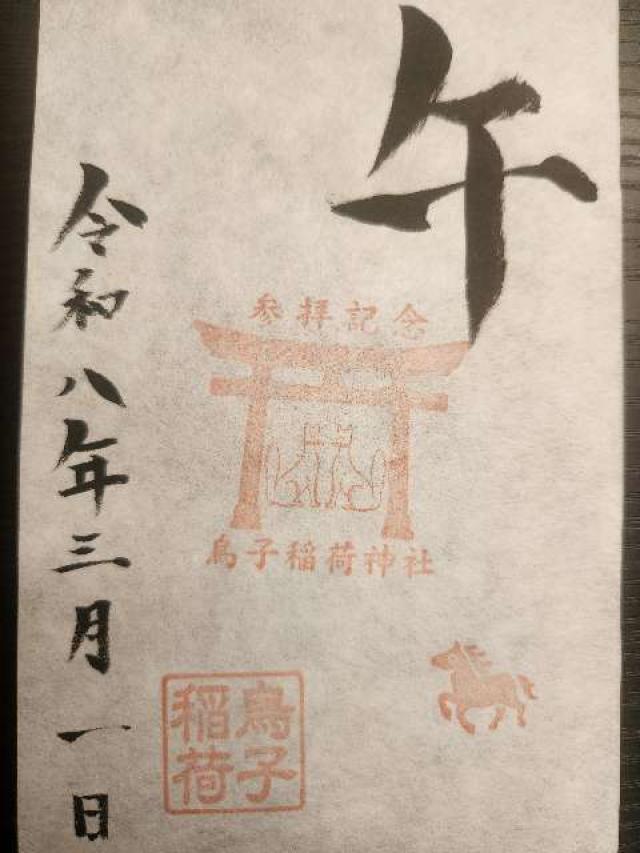 午
参拝記念
鳥子稲荷神社
鳥子
稲荷
令和八年三月一日